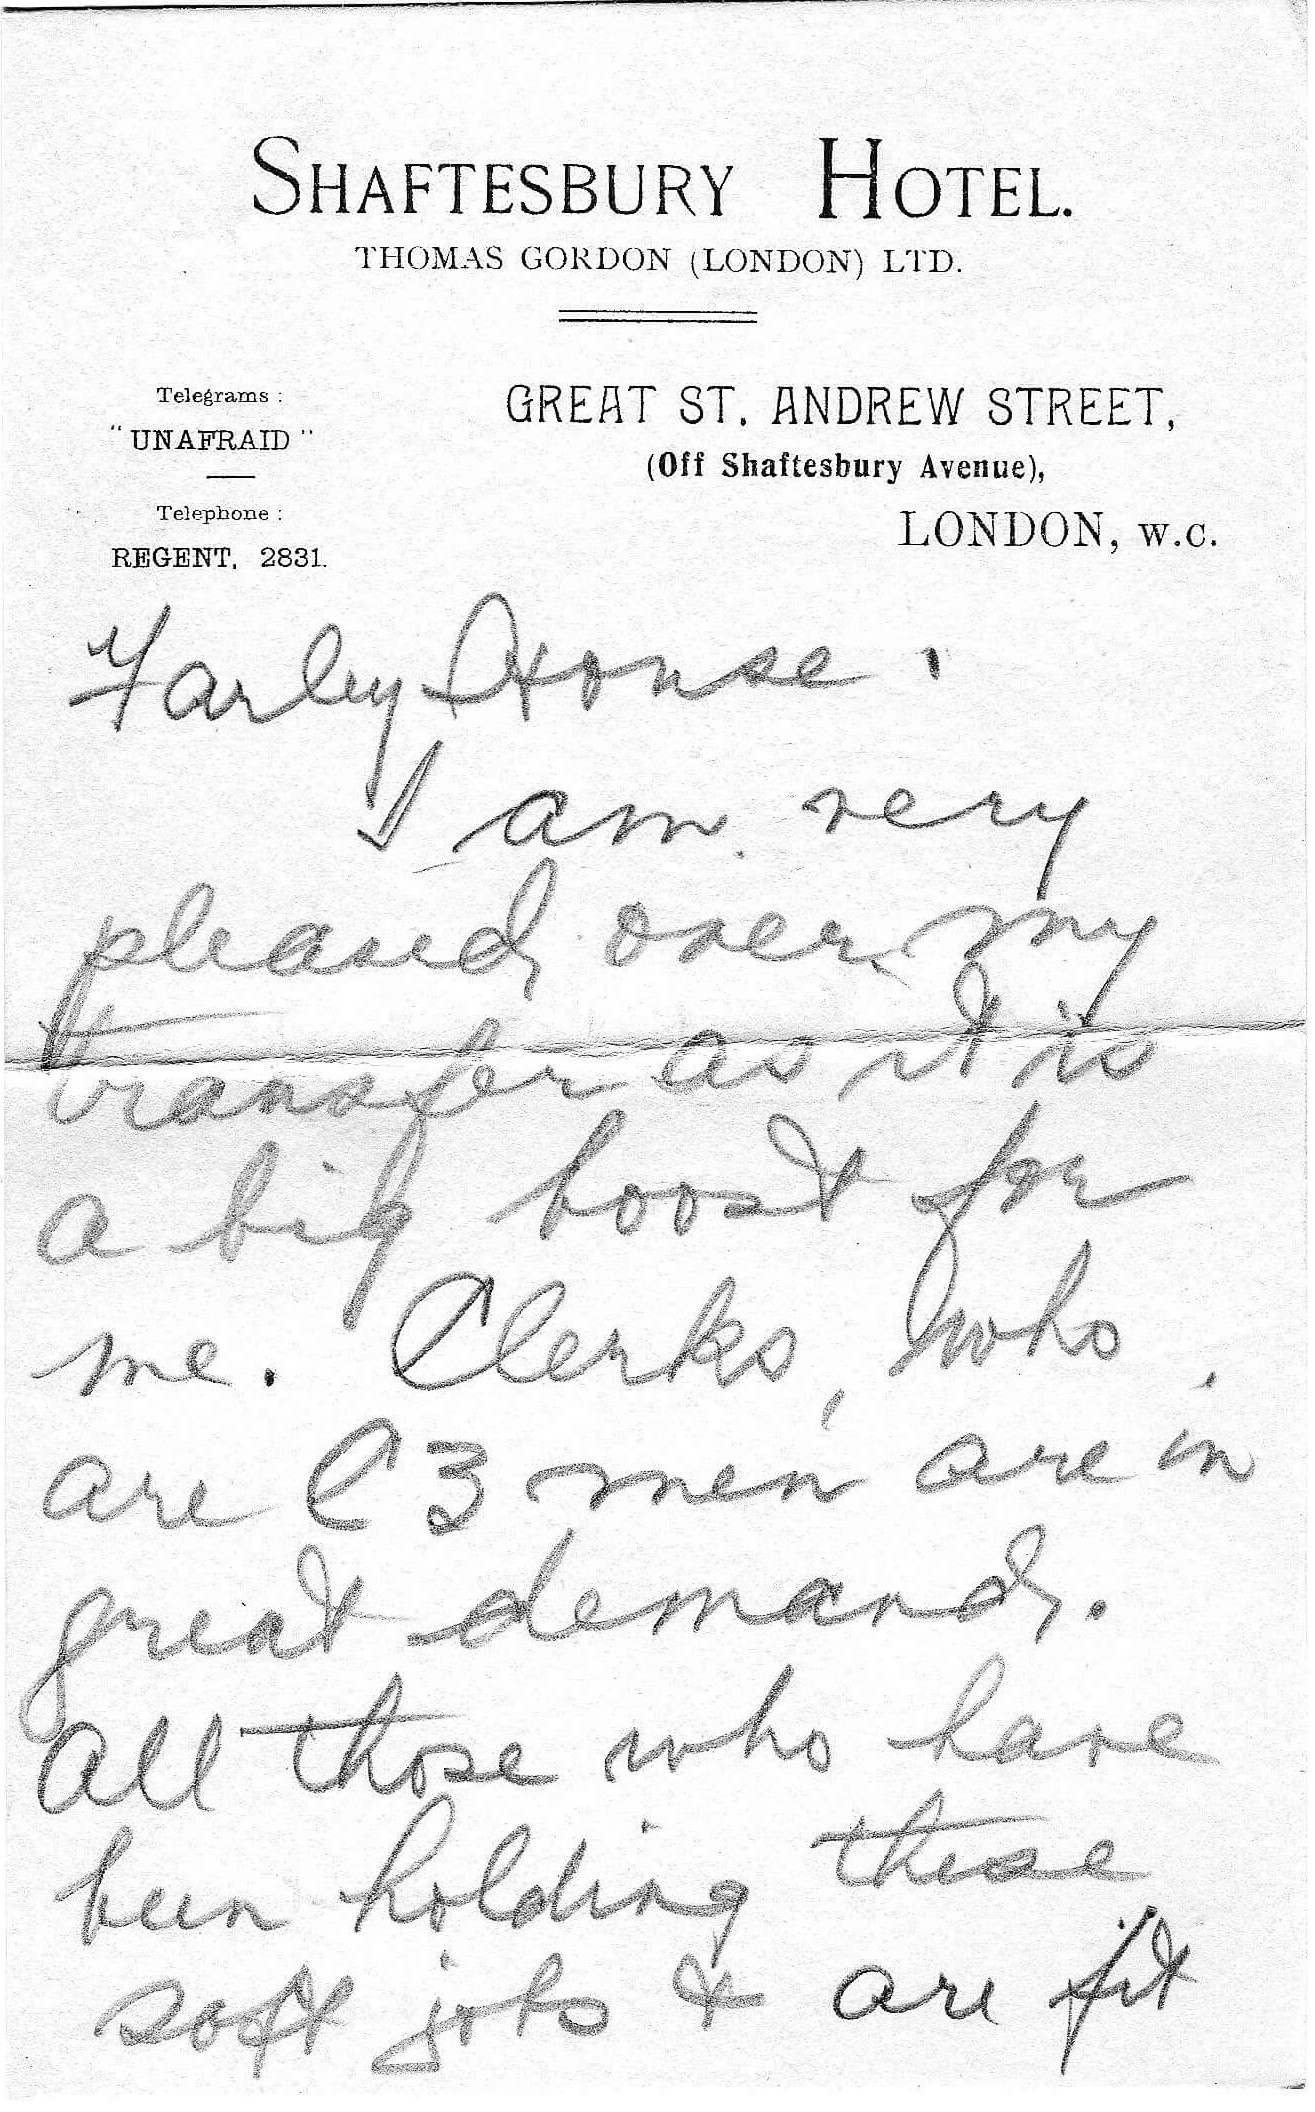 SHAFTESBURY HOTEL.
THOMAS GORDON (LONDON) LTD.
Telegrams :
"UNAFRAID"
Telephone :
REGENT, 2831.
GREAT ST. ANDREW STREET,
(Off Shaftesbury Avenue),
LONDON, W.C.
Farley House.
I am very
pleased over my
transfer as it is
a big boost for
me. Clerks, who
are C3 men are in
great demand.
All those who have
been holding these
soft jobs & are fit